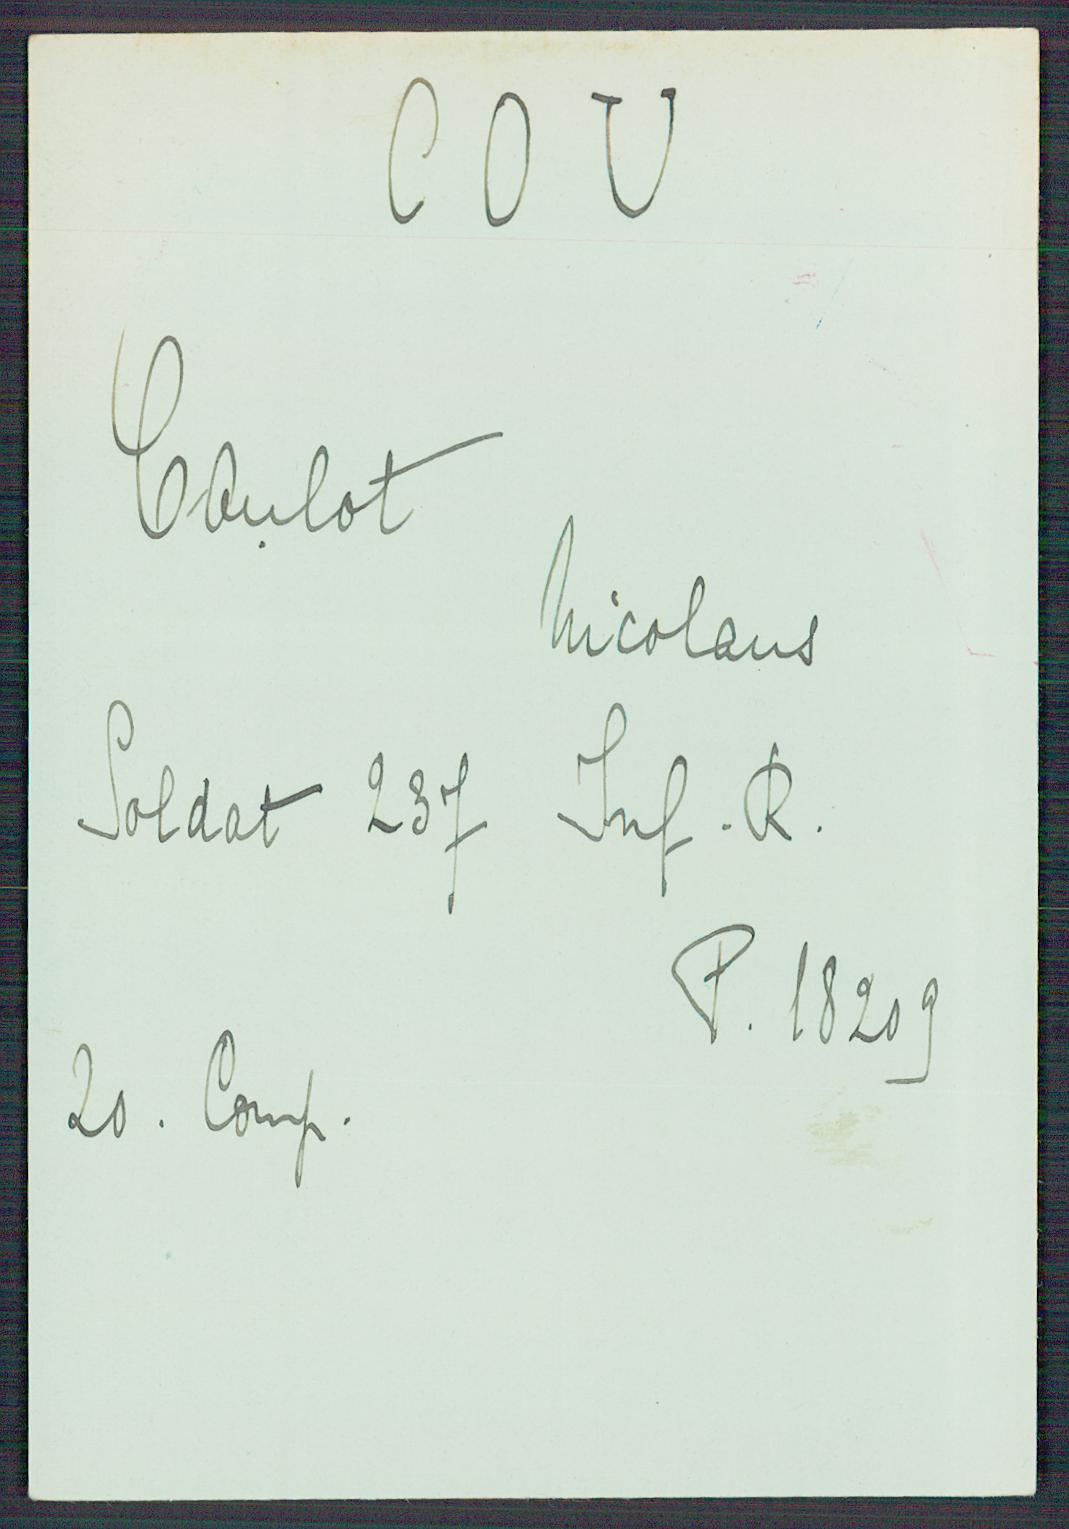 COU
Coulot
Nicolaus
Soldat 237 Inf. R.
P. 18209
20. Comp.